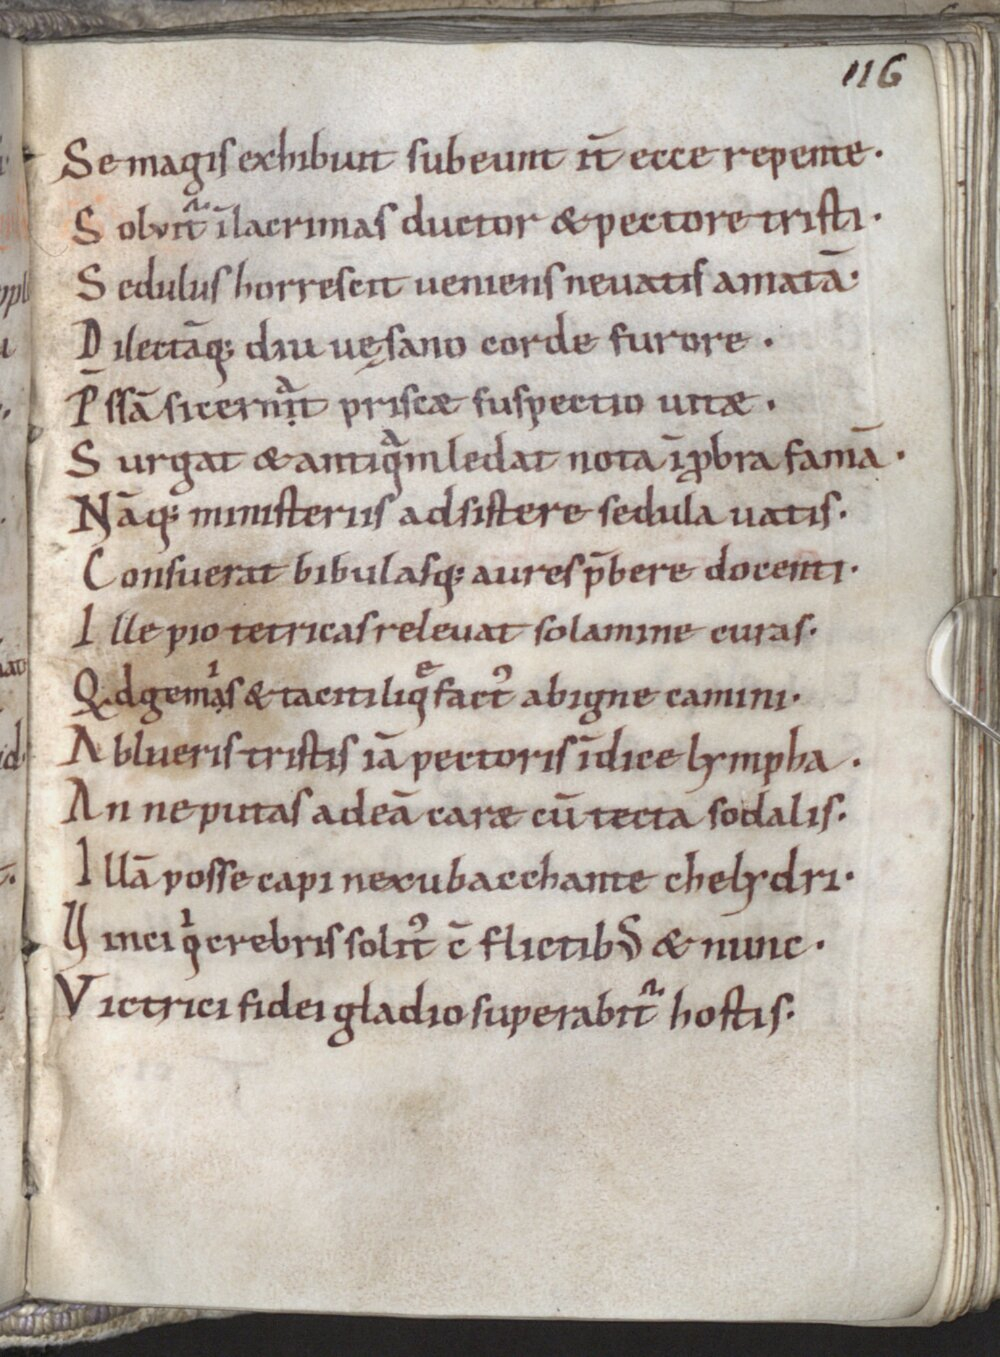 116
Se magis exhibuit subeunt it̄ ecce repente.
Solvit̄ᷣ ī lacrimas ductor & pectore tristi.
Sedulus horrescit veniens ne vatis amatā.
Dilectāq; diu vęsano corde furore.
P̄ssā si cernͣit priscæ suspectio vitæ.
Surgat & antiqͣm ledat nota īꝓbra famā.
Nāq; ministeriis adsistere sedula vatis.
Consuerat bibulasq; aures p̄bere docenti.
Ille pio tetricas relevat solamine curas.
Qd gemͥs & taciti liqͤfactꝰ ab igne camini.
Ablueris tristis iā pectoris īdice lympha.
An ne putas adeā caræ cū tecta sodalis.
Illā posse capi nexu bacchante chelydri.
Vinci qͥ crebris solit̄ꝰ c̄flictibꝰ & nunc.
Victrici fidei gladio superabit̄ᷣ hostis.